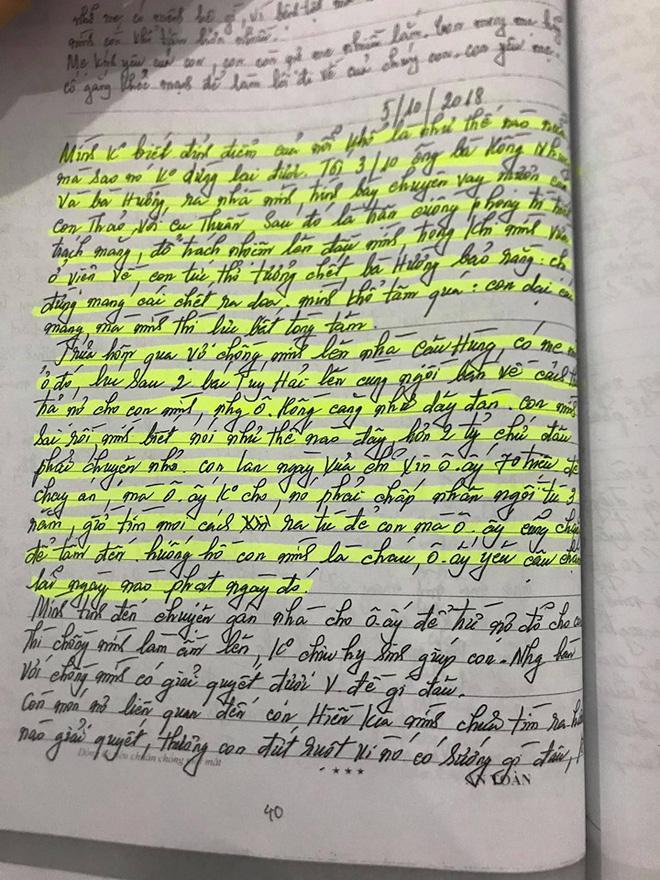 nhà mẹ có mệnh hệ gì, vì bệnh tật mà
mình còn khó khăn hơn nhiều.
Mẹ kính yêu của con, con còn giữ mẹ nhiều lắm. Con mong mẹ hãy
cố gắng khỏe mạnh để làm lối đi về của chúng con. con yêu mẹ.
5/10/2018
Mình ko biết đỉnh điểm của nỗi khổ là như thế nào nữa
mà sao nó ko dừng lại được. Tối 3/10 ông bà Hồng Nhu
Và bà Hường, ra nhà mình, trình bày chuyện vay mượn của
con Thảo, với cu Thuân sau đó là trận cuồng phong trì triết
trách mắng, đổ trách nhiệm lên đầu mình, trong khi mình vừa
ở viện về, con tức thở tưởng chết, bà Hường bảo rằng: chị
đừng mang cái chết ra dọa. mình khổ tâm quá: con dại cái
mang, mà mình thì lực bất tòng tâm.
Trưa hôm qua vợ chồng mình lên nhà cậu Hùng, có mẹ
ở đó, lúc sau 2 bác Tuy Hải lên cùng ngồi bàn về cách
trả nợ cho con mình, nhg ô. Hồng căng như dây đàn. Con mình
sai rồi mình biết nói như thế nào đây, hơn 2 tỷ chứ đâu
phải chuyện nhỏ. con lan ngày xưa chỉ xin ô. ấy 70 triệu để
chạy án, mà ô ấy ko cho, nó phải chấp nhận ngồi tù 3
năm, giờ tìm mọi cách ra tù để con mà ô. ấy cũng chẳng
để tâm đến. huống hồ con mình là cháu, ô. ấy yêu cầu chậm
lãi ngày nào phạt ngày đó.
Mình tính đến chuyện gán nhà cho ô ấy để trừ nợ đỡ cho con
thì chồng mình làm ầm lên, ko chịu hy sinh giúp con. Nhg bán
Với chồng mình có giải quyết được V đề gì đâu.
Còn món nợ liên quan đến con Hiền kia mình chưa tìm ra
nào giải quyết, thương con đứt ruột vì nó có sướng gì đâu,
AN TOÀN
40